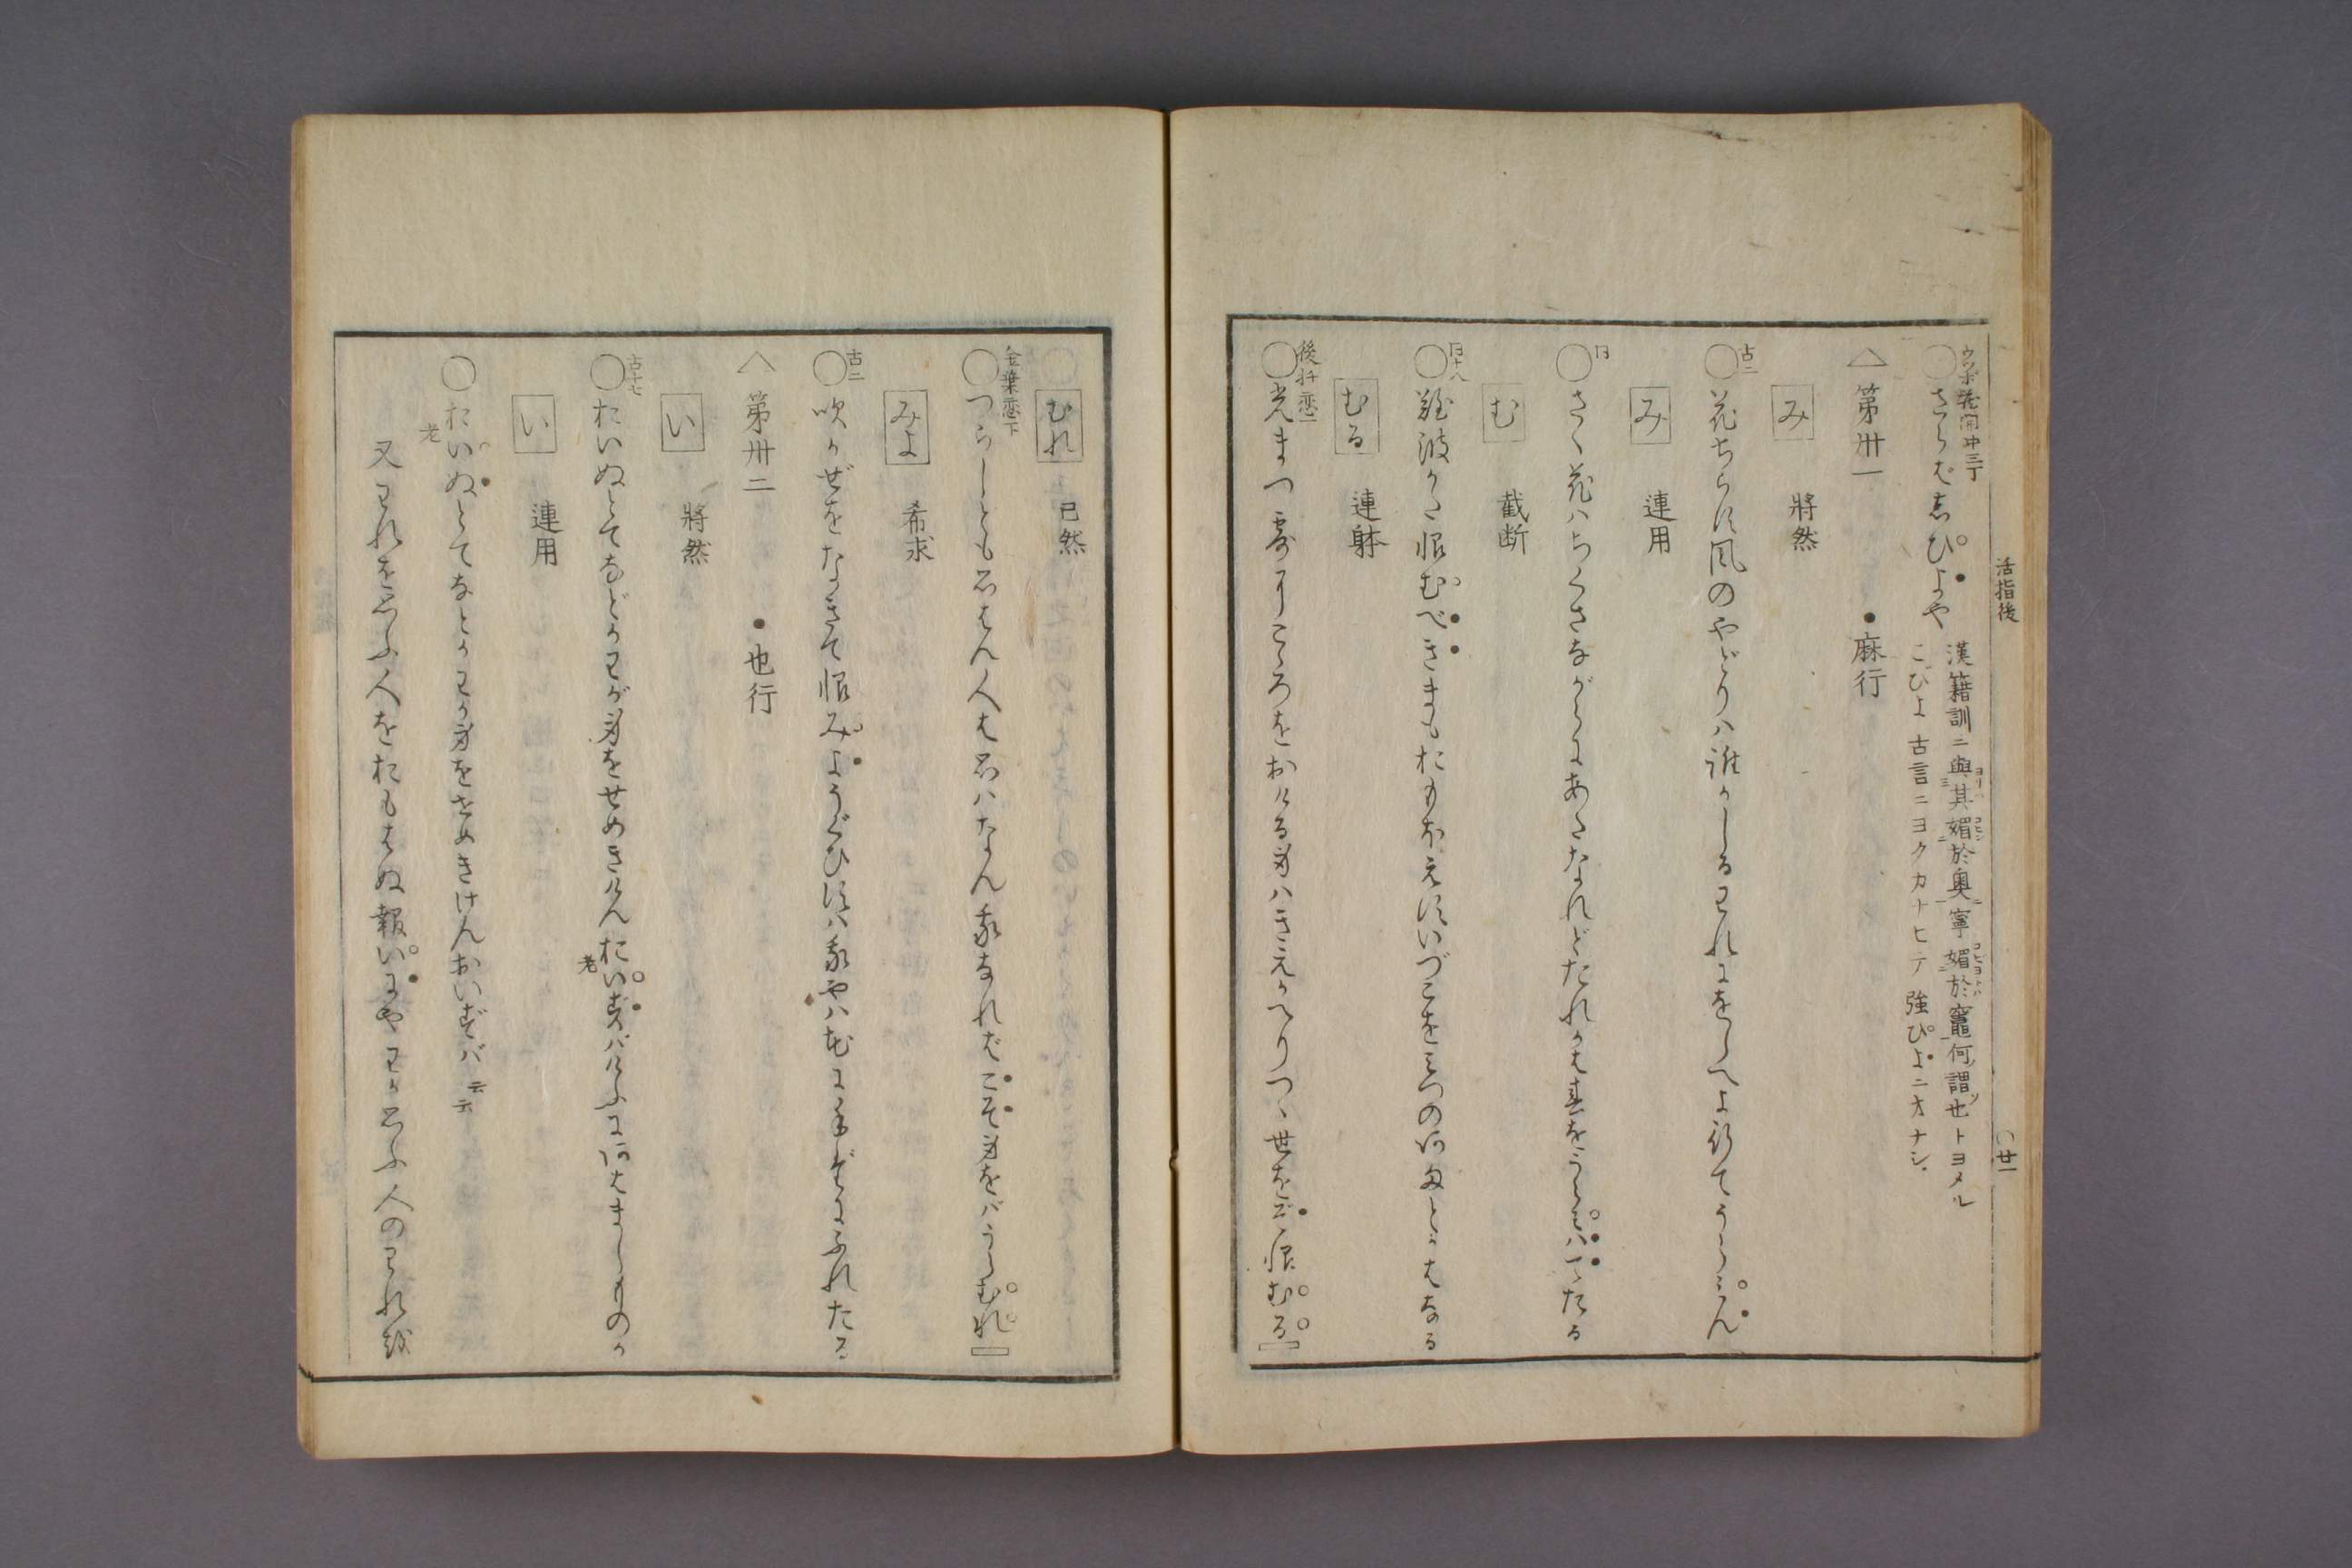 活指後
○廿一
ウツボ蔵開中三丁
○さらばしひよや
漢籍訓ニ與其媚於奥寧媚於竈何謂也トヨメル
こびよ古言ニヨクカナヒテ強ひよニオナシ
△第卅一 ●麻行
み 將然
古二
○花ちらす風のやどりハ誰かしるわれにをしへよ行てうらみん
み 連用
同
○さく花ハちくさながらにあたなれどたれかは春をうらみハてたる
む 截断
同十八
○難波かた恨むべきまもおもほえすいづこをみつのあまとかはなる
むる 連躰
後拾恋一
○光まつ露にこゝろをおける身ハきえかへりつゝ世をぞ恨むる
むれ 已然
金葉恋下
○つらしともおもはん人はおもハなん我なればこそ身をバうらむれ
みよ 希求
古二
○吹かぜをなきて恨みようぐひすハ我やハ花に手だにふれたる
△第卅二 ●也行
い 將然
古十七
○おいぬとてなどかわが身をせめきけんおいずバけふにあはましものか
老
い 連用
○おいぬとてなとかわか身をせめきけんおいずバ云云
老
又われをおもふ人をおもはぬ報いにやわかおもふ人のわれを